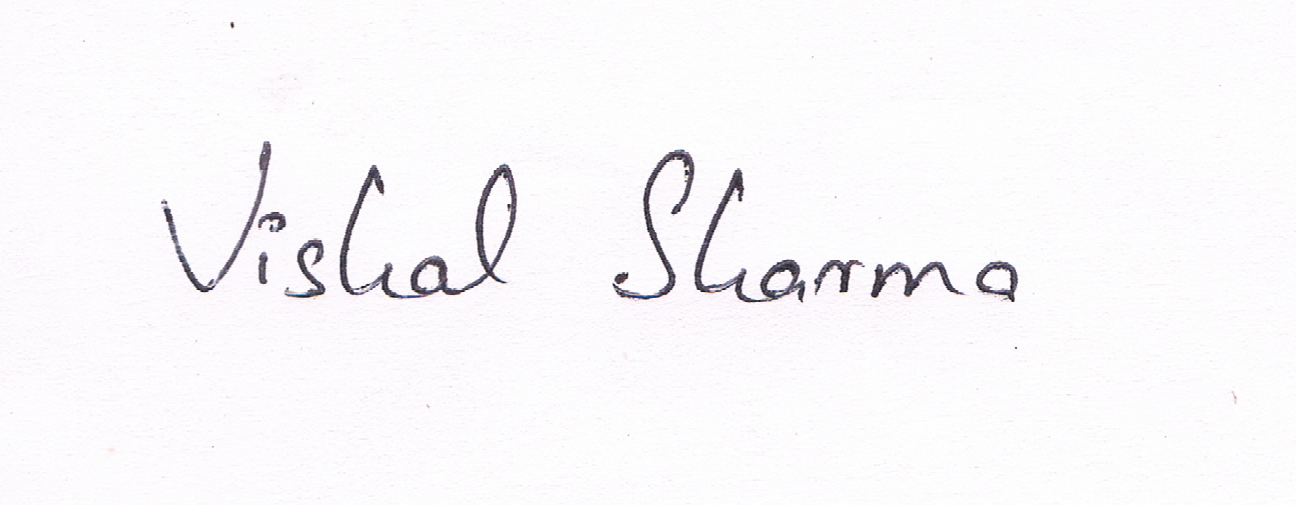 Vishal Sharma